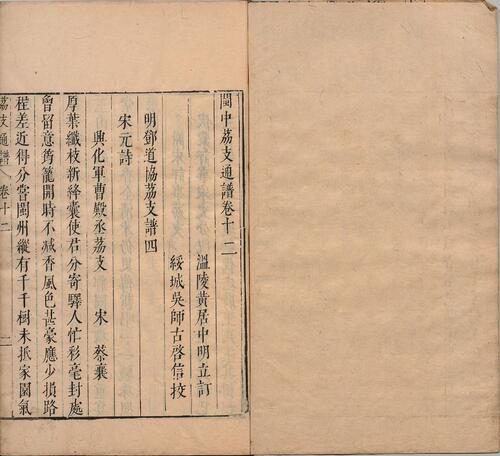 閩中荔支通譜卷十二
溫陵黃居中明立訂
綏城吳師古啓信挍
明鄧道協荔支譜四
宋元詩
興化軍曹殿丞荔支 宋 蔡襄
厚葉纖枝新絳囊使君分寄驛人忙彩毫封處
曾留意筠籠開時不減香風色甚豪應少損路
程差近得分嘗閩州縱有千千樹未抵家園氣
荔支通譜 卷十二 一